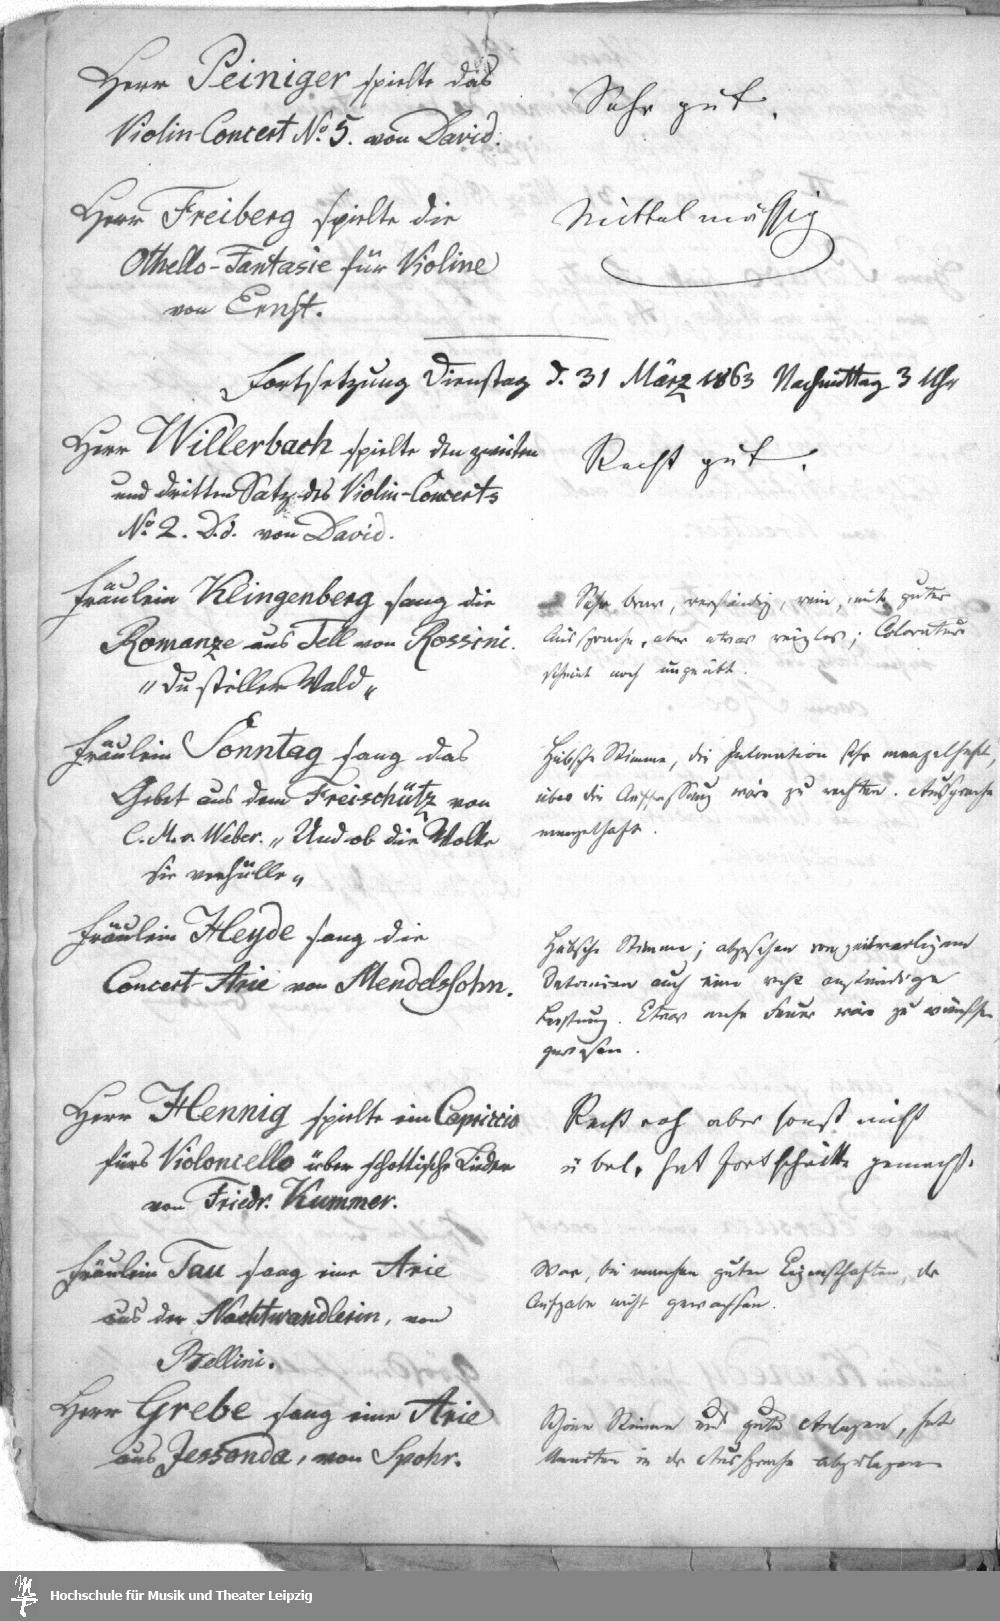 Herr Peiniger spielte das
Violin-Concert No. 5. von David.
Sehr gut.
Herr Freiberg spielte die
Othello-Fantasie für Violine
von Ernst.
Mittelmässig
Fortsetzung Dienstag d. 31 März 1863 Nachmittag 3 Uhr
Herr Willerbach spielte den zweiten
und dritten Satz des Violin-Concerts
No. 2. D.d. von David.
Recht gut.
Fräulein Klingenberg sang die
Romanze aus Tell von Rossini.
"Du stiller Wald"
Sehr brav, verständig, rein, mit guter
Aussprache, aber etwas reizlos; Coloratur
scheint noch ungeübt.
Fräulein Sonntag sang das
Gebet aus dem Freischütz von
C. M. v. Weber. "Und ob die Wolke
sie verhülle"
Hübsche Stimme, die Intonation sehr mangelhaft,
über die Auffassung wäre zu rechten. Aussprache
mangelhaft.
Fräulein Heyde sang die
Concert Arie von Mendelssohn.
Hübsche Stimme; abgesehen von zeitweiligem
Detoniren auch eine recht anständige
Leistung. Etwas mehr Feuer wäre zu wünschen
gewesen.
Herr Hennig spielte ein Capriccio
fürs Violoncello über schottische Lieder
von Friedr. Kummer.
Recht roh aber sonst nicht
übel, hat Fortschritte gemacht.
Fräulein Tau sang eine Arie
aus der Nachtwandlerin, von
Bellini.
War, bei manchen guten Eigenschaften, der
Aufgabe nicht gewachsen.
Herr Grebe sang eine Arie
aus Jessonda, von Spohr.
Schöne Stimme und gute Anlagen, hat
Unarten in der Aussprache abzulegen
Hochschule für Musik und Theater Leipzig